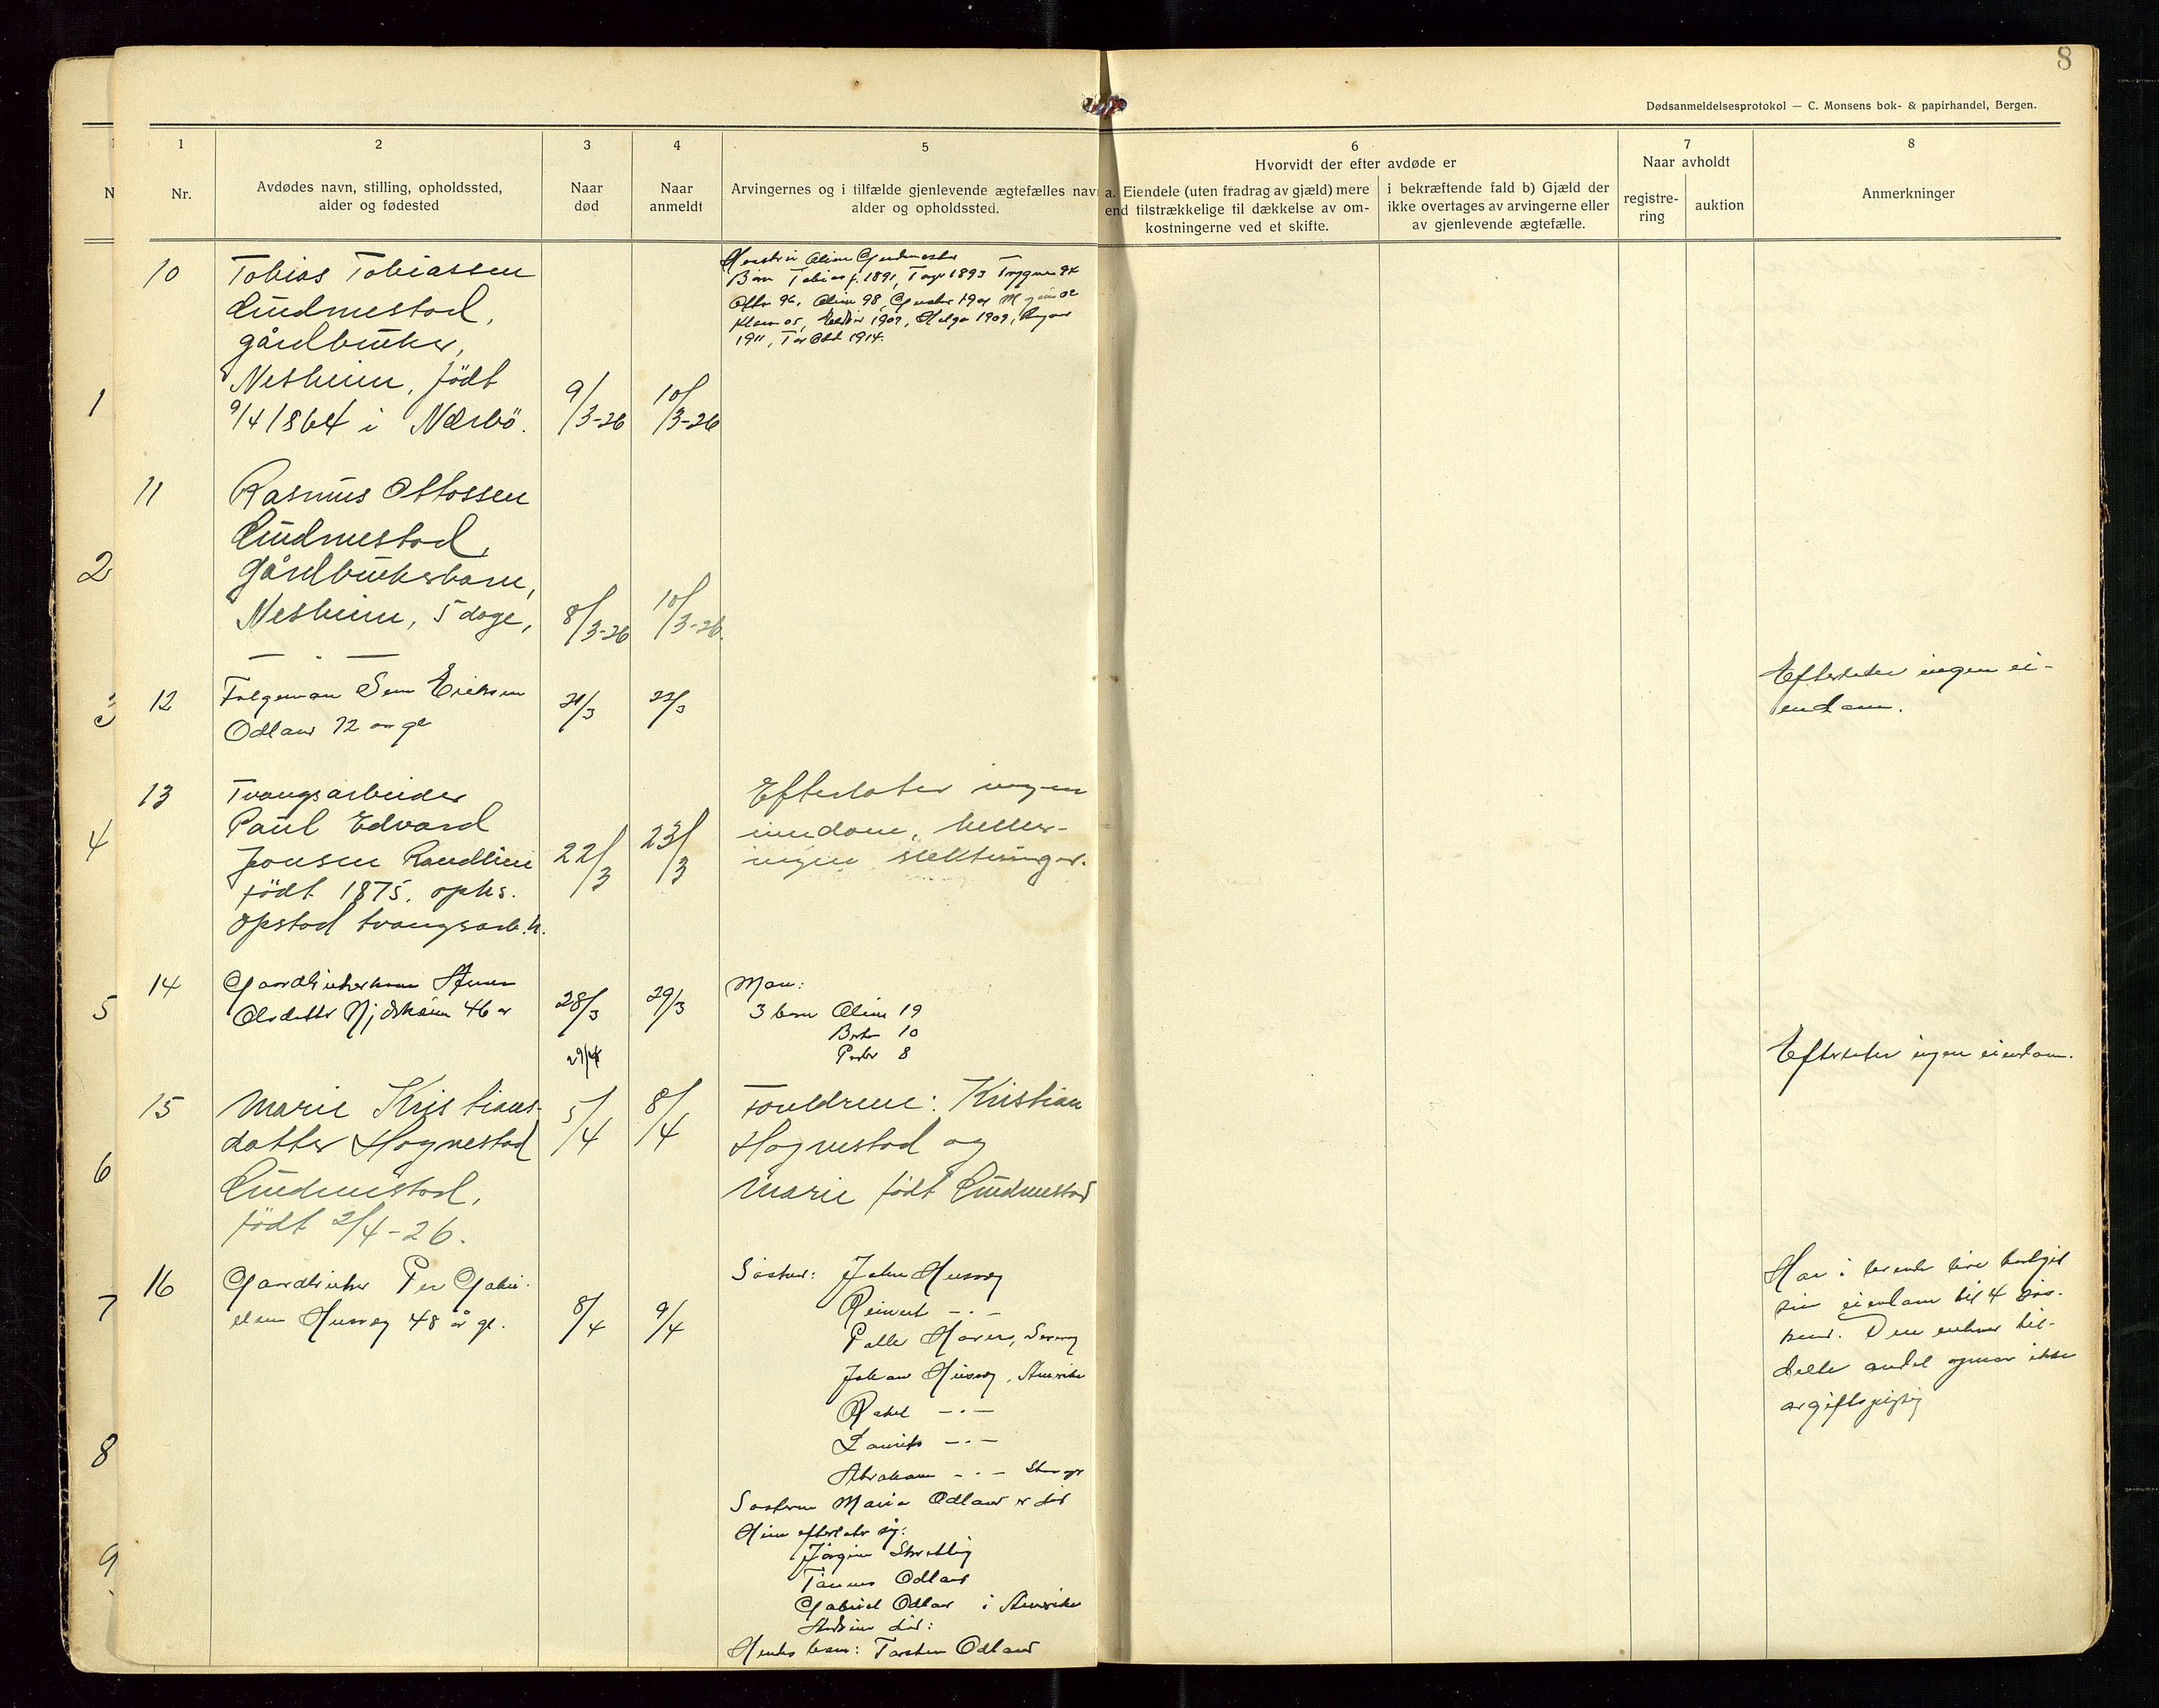 8
Dødsanmeldelsesprotokol — C. Monsens bok- & papirhandel, Bergen.
1
Nr.
2
Avdødes navn, stilling, opholdssted,
alder og fødested
3
Naar
død
4
Naar
anmeldt
5
Arvingernes og i tilfælde gjenlevende ægtefælles navn
alder og opholdssted.
6
Hvorvidt der efter avdøde er
a. Eiendele (uten fradrag av gjæld) mere
end tilstrækkelige til dækkelse av om-
kostningerne ved et skifte.
i bekræftende fald b) Gjæld der
ikke overtages av arvingerne eller
av gjenlevende ægtefælle.
7
Naar avholdt
registre-
ring
auktion
8
Anmerkninger
N
1
2
3
4
5
6
7
8
9
10
Tobias Tobiassen
Gudmestad,
gårdbruker,
Nesheim, født
9/4 1864 i Nærbö.
9/3-26
10/3-26
Gudmestad
Børn Tobias f. 1891, 1893 Trygve 94
Otto 96, Oline 98, Gustav 1901
Klara 05, 1907, Helga 1909, Ragna
1911, 1914.
11
Rasmus Ottossen
Gudmestad,
Gårdbrukerbarn,
Nesheim, 5 dage,
8/3-26
10/3-26.
12
Folgeman Sem Eriksen
Odland 72 aar gl
21/3
22/3
Efterlater ingen ei-
endom.
13
Tvangsarbeider
Paul Edvard
Jonsen Randlini
född 1875. opks.
Opstad tvangsarb.h.
22/3
23/3
Efterlater ingen
iendom, heller-
ingen slektninger.
14
Gaardbrukerkone Anna
Olsdatter 46 år
28/3
29/3
29/4
Man:
3 barn Oline 19
Berta 10
Peder 8
Efterlater ingen eiendom.
15
Marie Kristians-
datter Hognestad
Gudmestad,
født 2/4-26.
5/4
8/4
Foreldrene: Kristian
Hognestad og
Marie født Gudmestad
16
Gaardbruker Per Gabri-
elsen Husvæg 48 år gl.
8/4
9/4
Søsken: John Husvæg
Reinert -"-
Palle
Johan Husvæg, Amerika
Rakel -"-
Laurits -"-
Abraham -"-
Søsteren Maria Odland er død
Hun efterlater sig:
Jørgine
Odland
Gabriel Odland i Amerika
død:
Hendes barn: Torsten Odland
Har i levende live bortgit
sin eiendom til 4 søs-
ken. Den enkelte til-
delte andel
avgiftspligtig